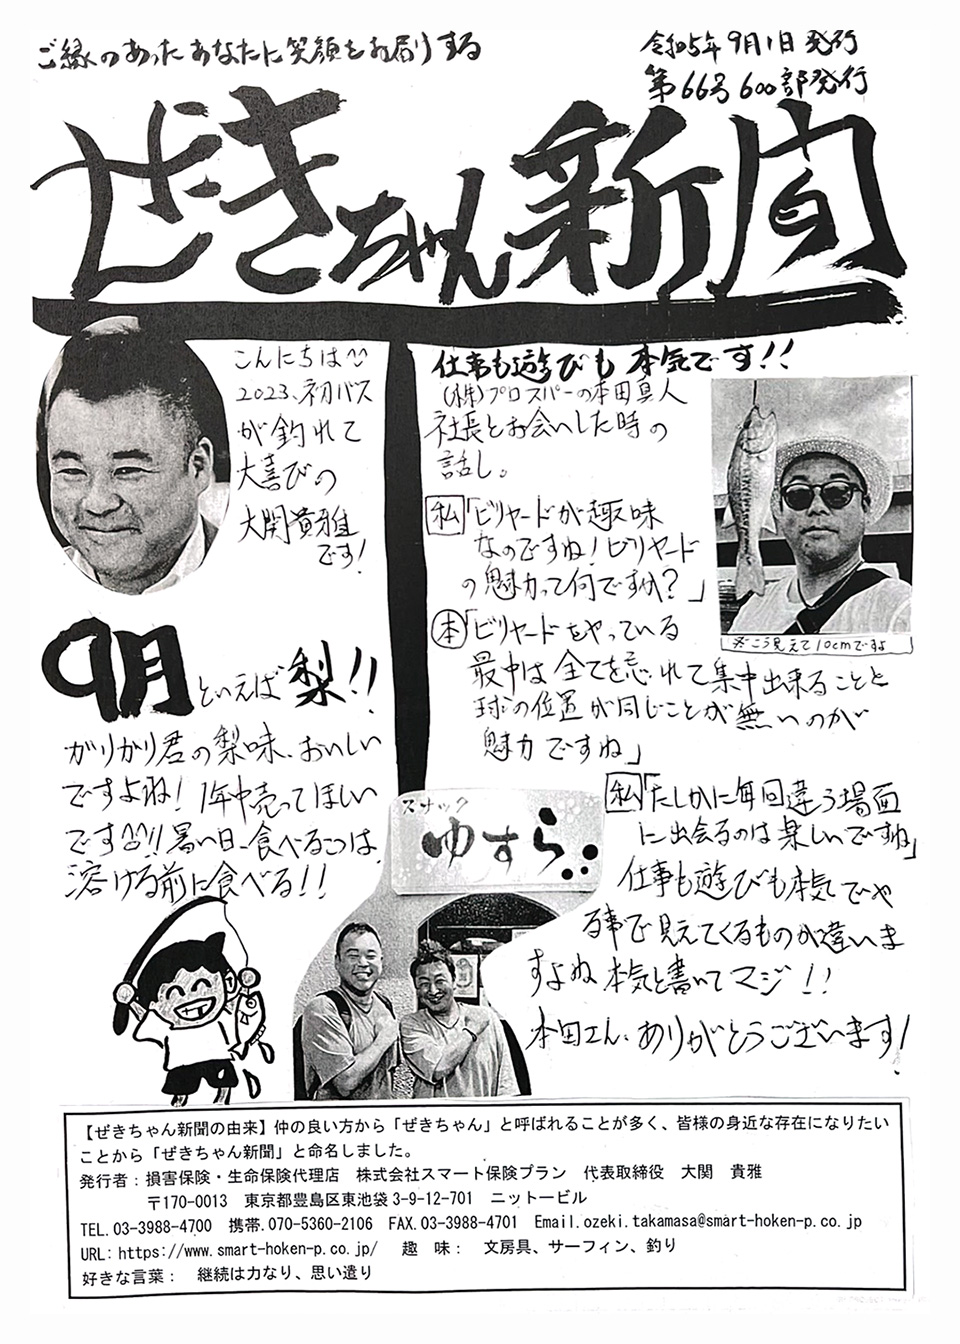 ご縁のあったあなたに笑顔をお届けする
令和5年9月1日発行
第66号600部発行
ぜきちゃん新聞
こんにちは^^
2023、初バス
が釣れて
大喜びの
大関貴雅
です!
9月といえば梨!!
ガリガリ君の梨味、おいしい
ですよね! 1年中売ってほしい
です^^!! 暑い日、食べるコツは、
溶ける前に食べる!!
仕事も遊びも本気です!!
(株)プロスパーの本田真人
社長とお会いした時の
話し。
私「ビリヤードが趣味
なのですね!ビリヤード
の魅力って何ですか?」
本「ビリヤードをやっている
最中は全てを忘れて集中出来ることと
球の位置が同じことが無いのが
魅力ですね」
※こう見えて10cmですよ
私「たしかに毎回違う場面
に出会るのは楽しいですね」
仕事も遊びも本気でや
る事で見えてくるものが違いま
すよね 本気と書いてマジ!!
本田さん、ありがとうございます!
スナック
ゆすら
【ぜきちゃん新聞の由来】仲の良い方から「ぜきちゃん」と呼ばれることが多く、皆様の身近な存在になりたい
ことから「ぜきちゃん新聞」と命名しました。
発行者:損害保険・生命保険代理店 株式会社スマート保険プラン 代表取締役 大関 貴雅
〒170-0013 東京都豊島区東池袋3-9-12-701 ニットービル
TEL.03-3988-4700 携帯.070-5360-2106 FAX.03-3988-4701 Email.ozeki.takamasa@smart-hoken-p.co.jp
URL:https://www.smart-hoken-p.co.jp/ 趣 味: 文房具、サーフィン、釣り
好きな言葉: 継続は力なり、思い遣り